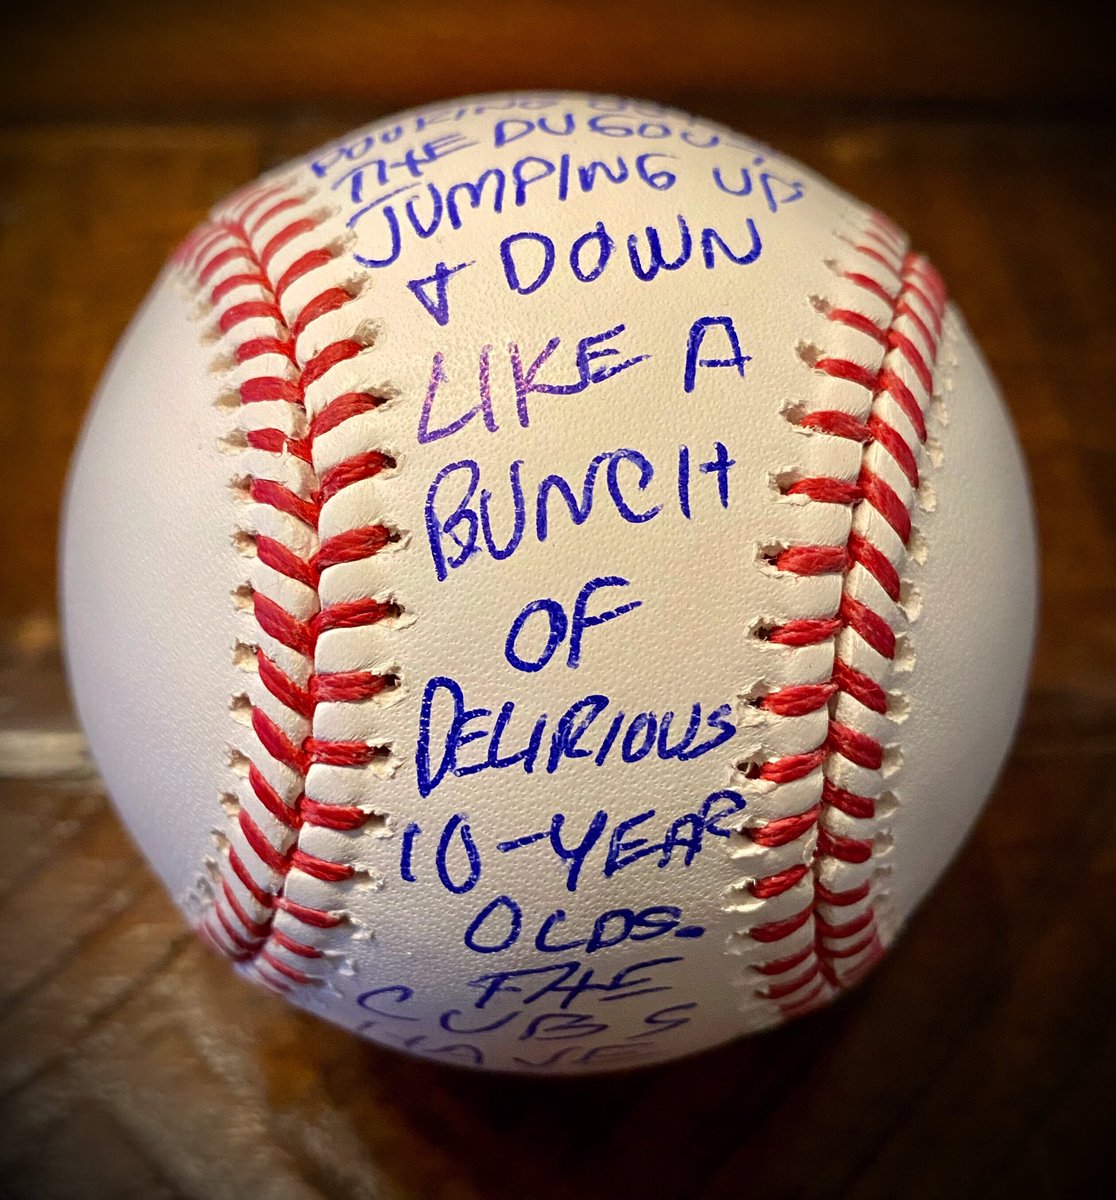 POURING OUT
THE DUGOUT
JUMPING UP
+ DOWN
LIKE A
BUNCH
OF
DELIRIOUS
10-YEAR
OLDS.
THE
CUBS
HAVE